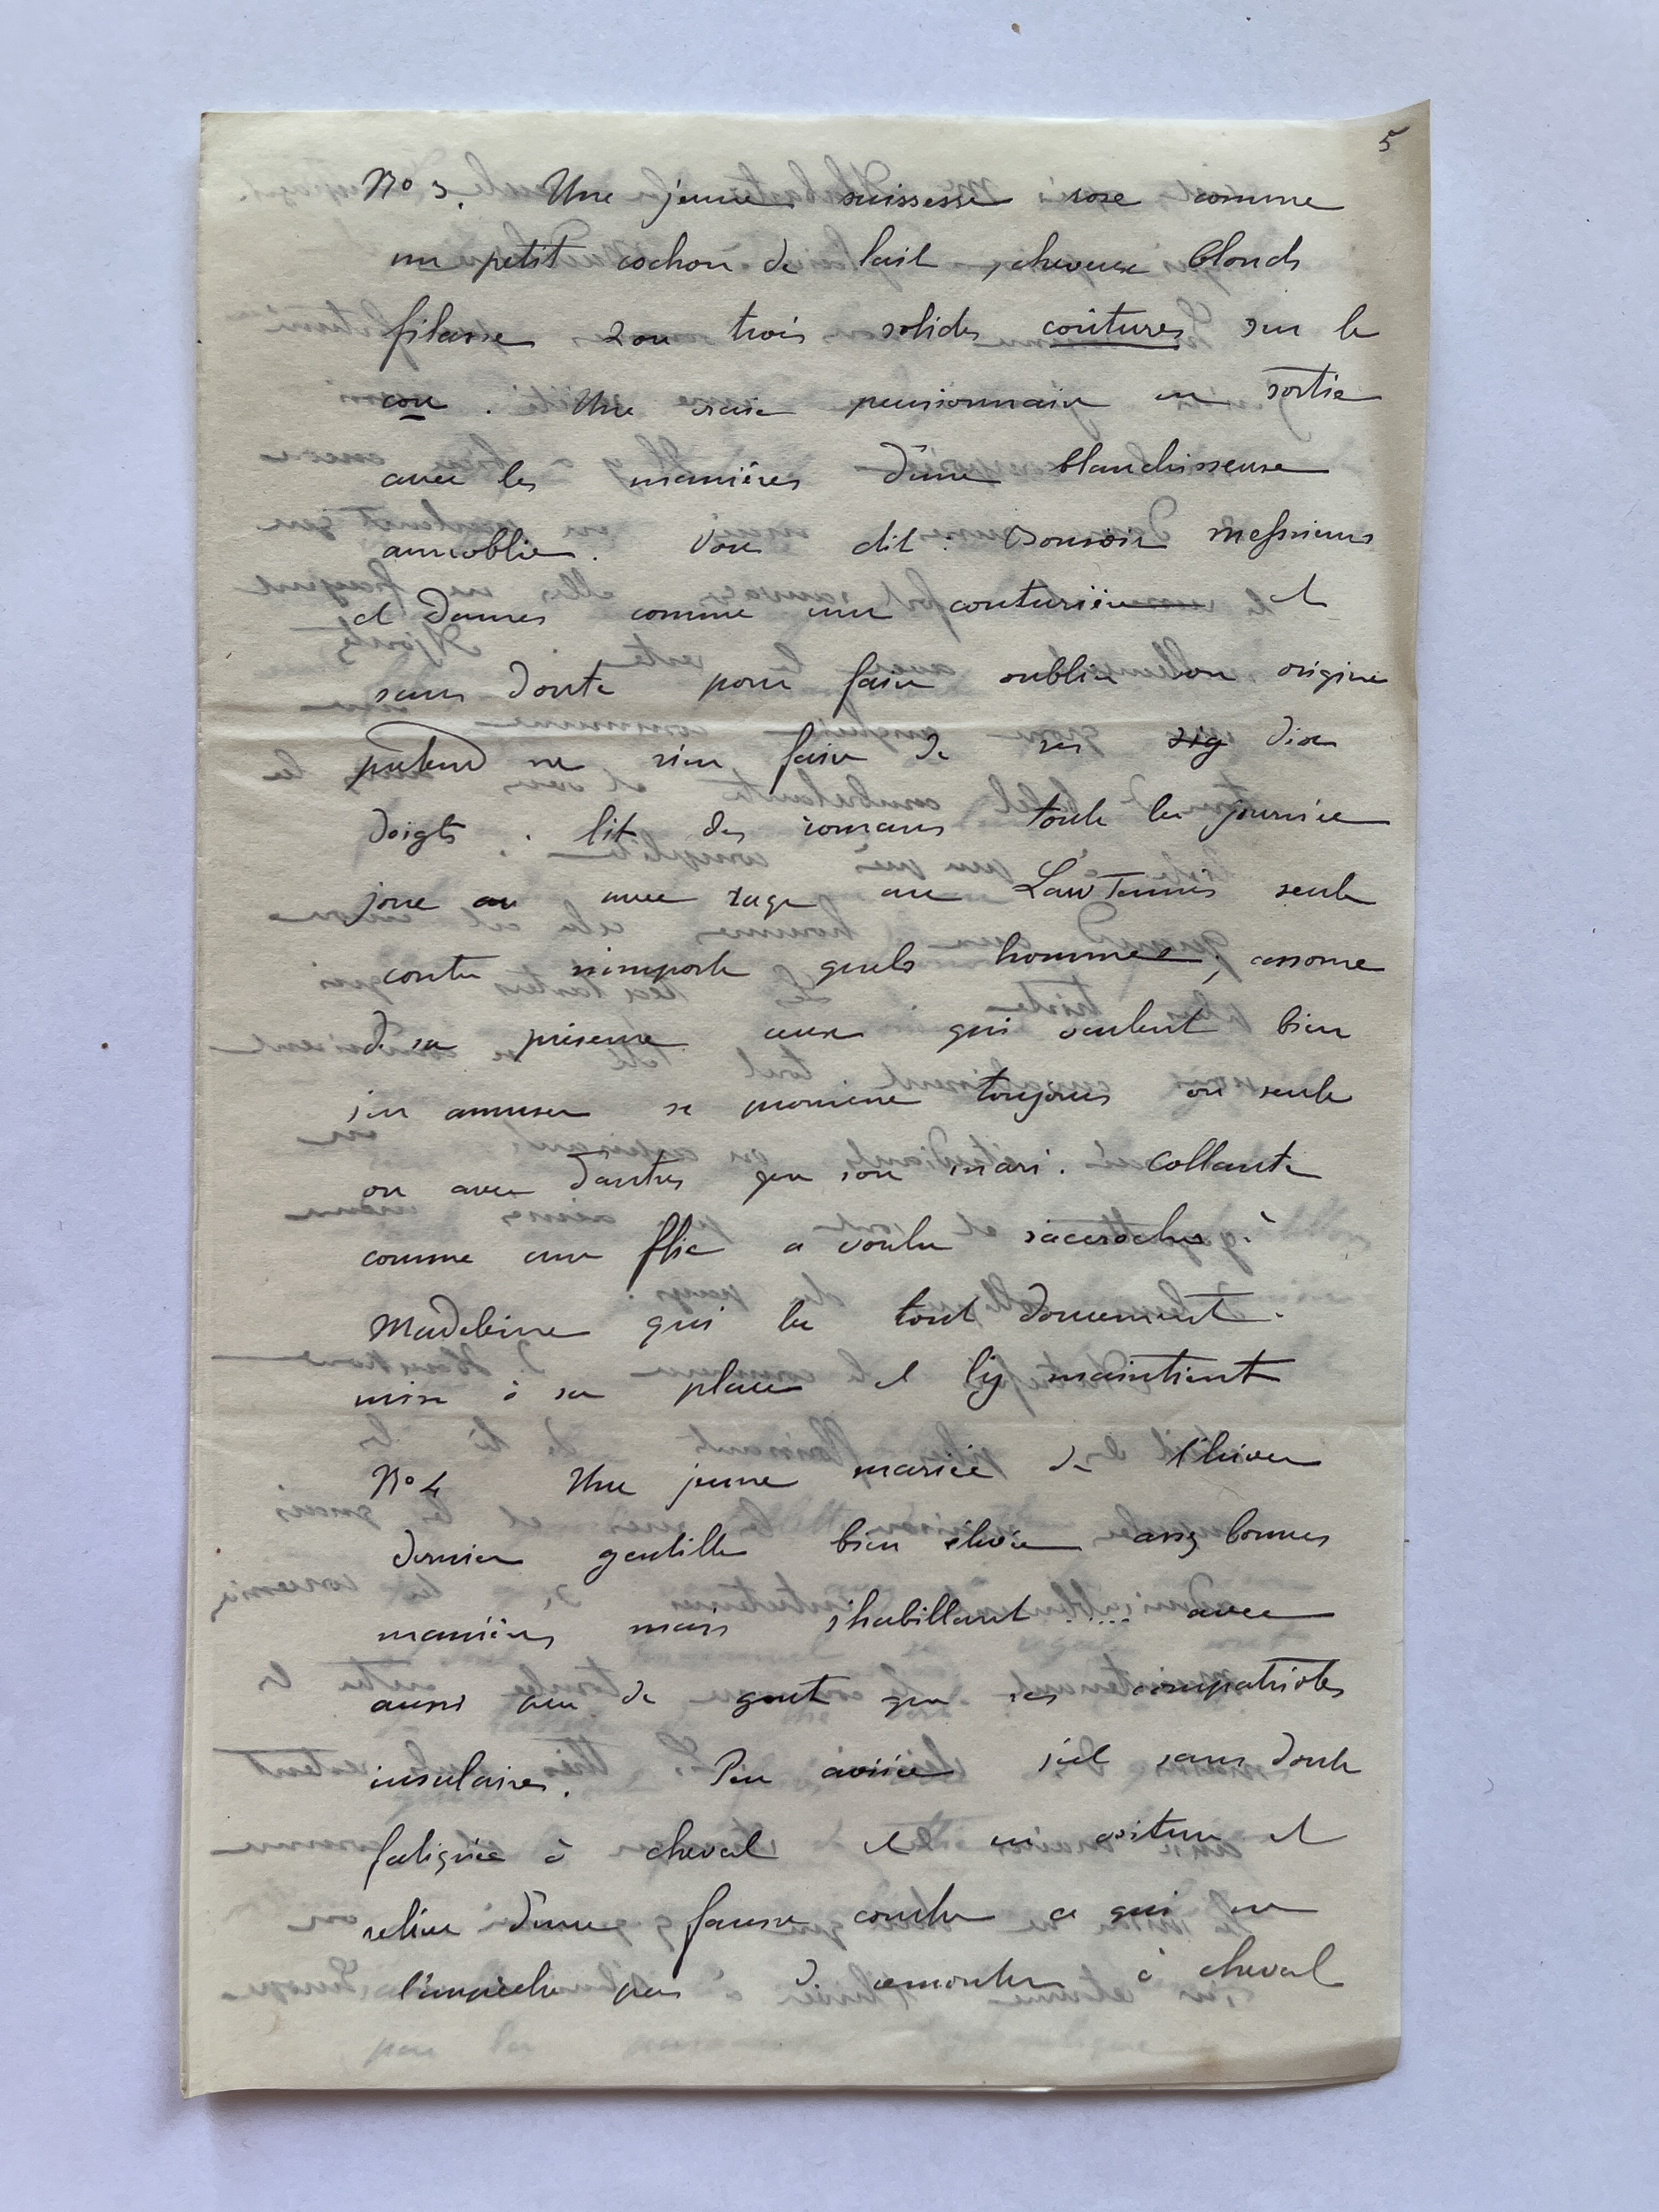 5
No 3. Une jeune suissesse rose comme
un petit cochon de lait, cheveux blonds
filasse 2 ou trois solides coutures sur le
cou. Une vraie pensionnaire en sortie
avec les manières d'une blanchisseuse
annoblie. Vous dit: Bonsoir Messieurs
et Dames comme une couturière et
sans doute pour faire oublier son origine
prétend ne rien faire de ses dix
doigts. lit des romans toute la journée
joue avec rage au Law Tennis seule
contre nimporte quels hommes, assome
de sa présence ceux qui veulent bien
s'en amuser se promène toujours ou seule
ou avec d'autres que son mari. Collante
comme une a voulu s'accrocher à
Madeleine qui la tout doucement
mise à sa place et l'y maintient
No 4 Une jeune mariée de l'hiver
dernier gentille bien élevée assez bonnes
manières mais s'habillant ..... avec
aussi peu de gout que ses compatriotes
insulaires. Peu avisée s'est sans doute
fatiguée à cheval et en voiture et
relève d'une fausse couche ce qui ne
l'empêche pas de remonter à cheval